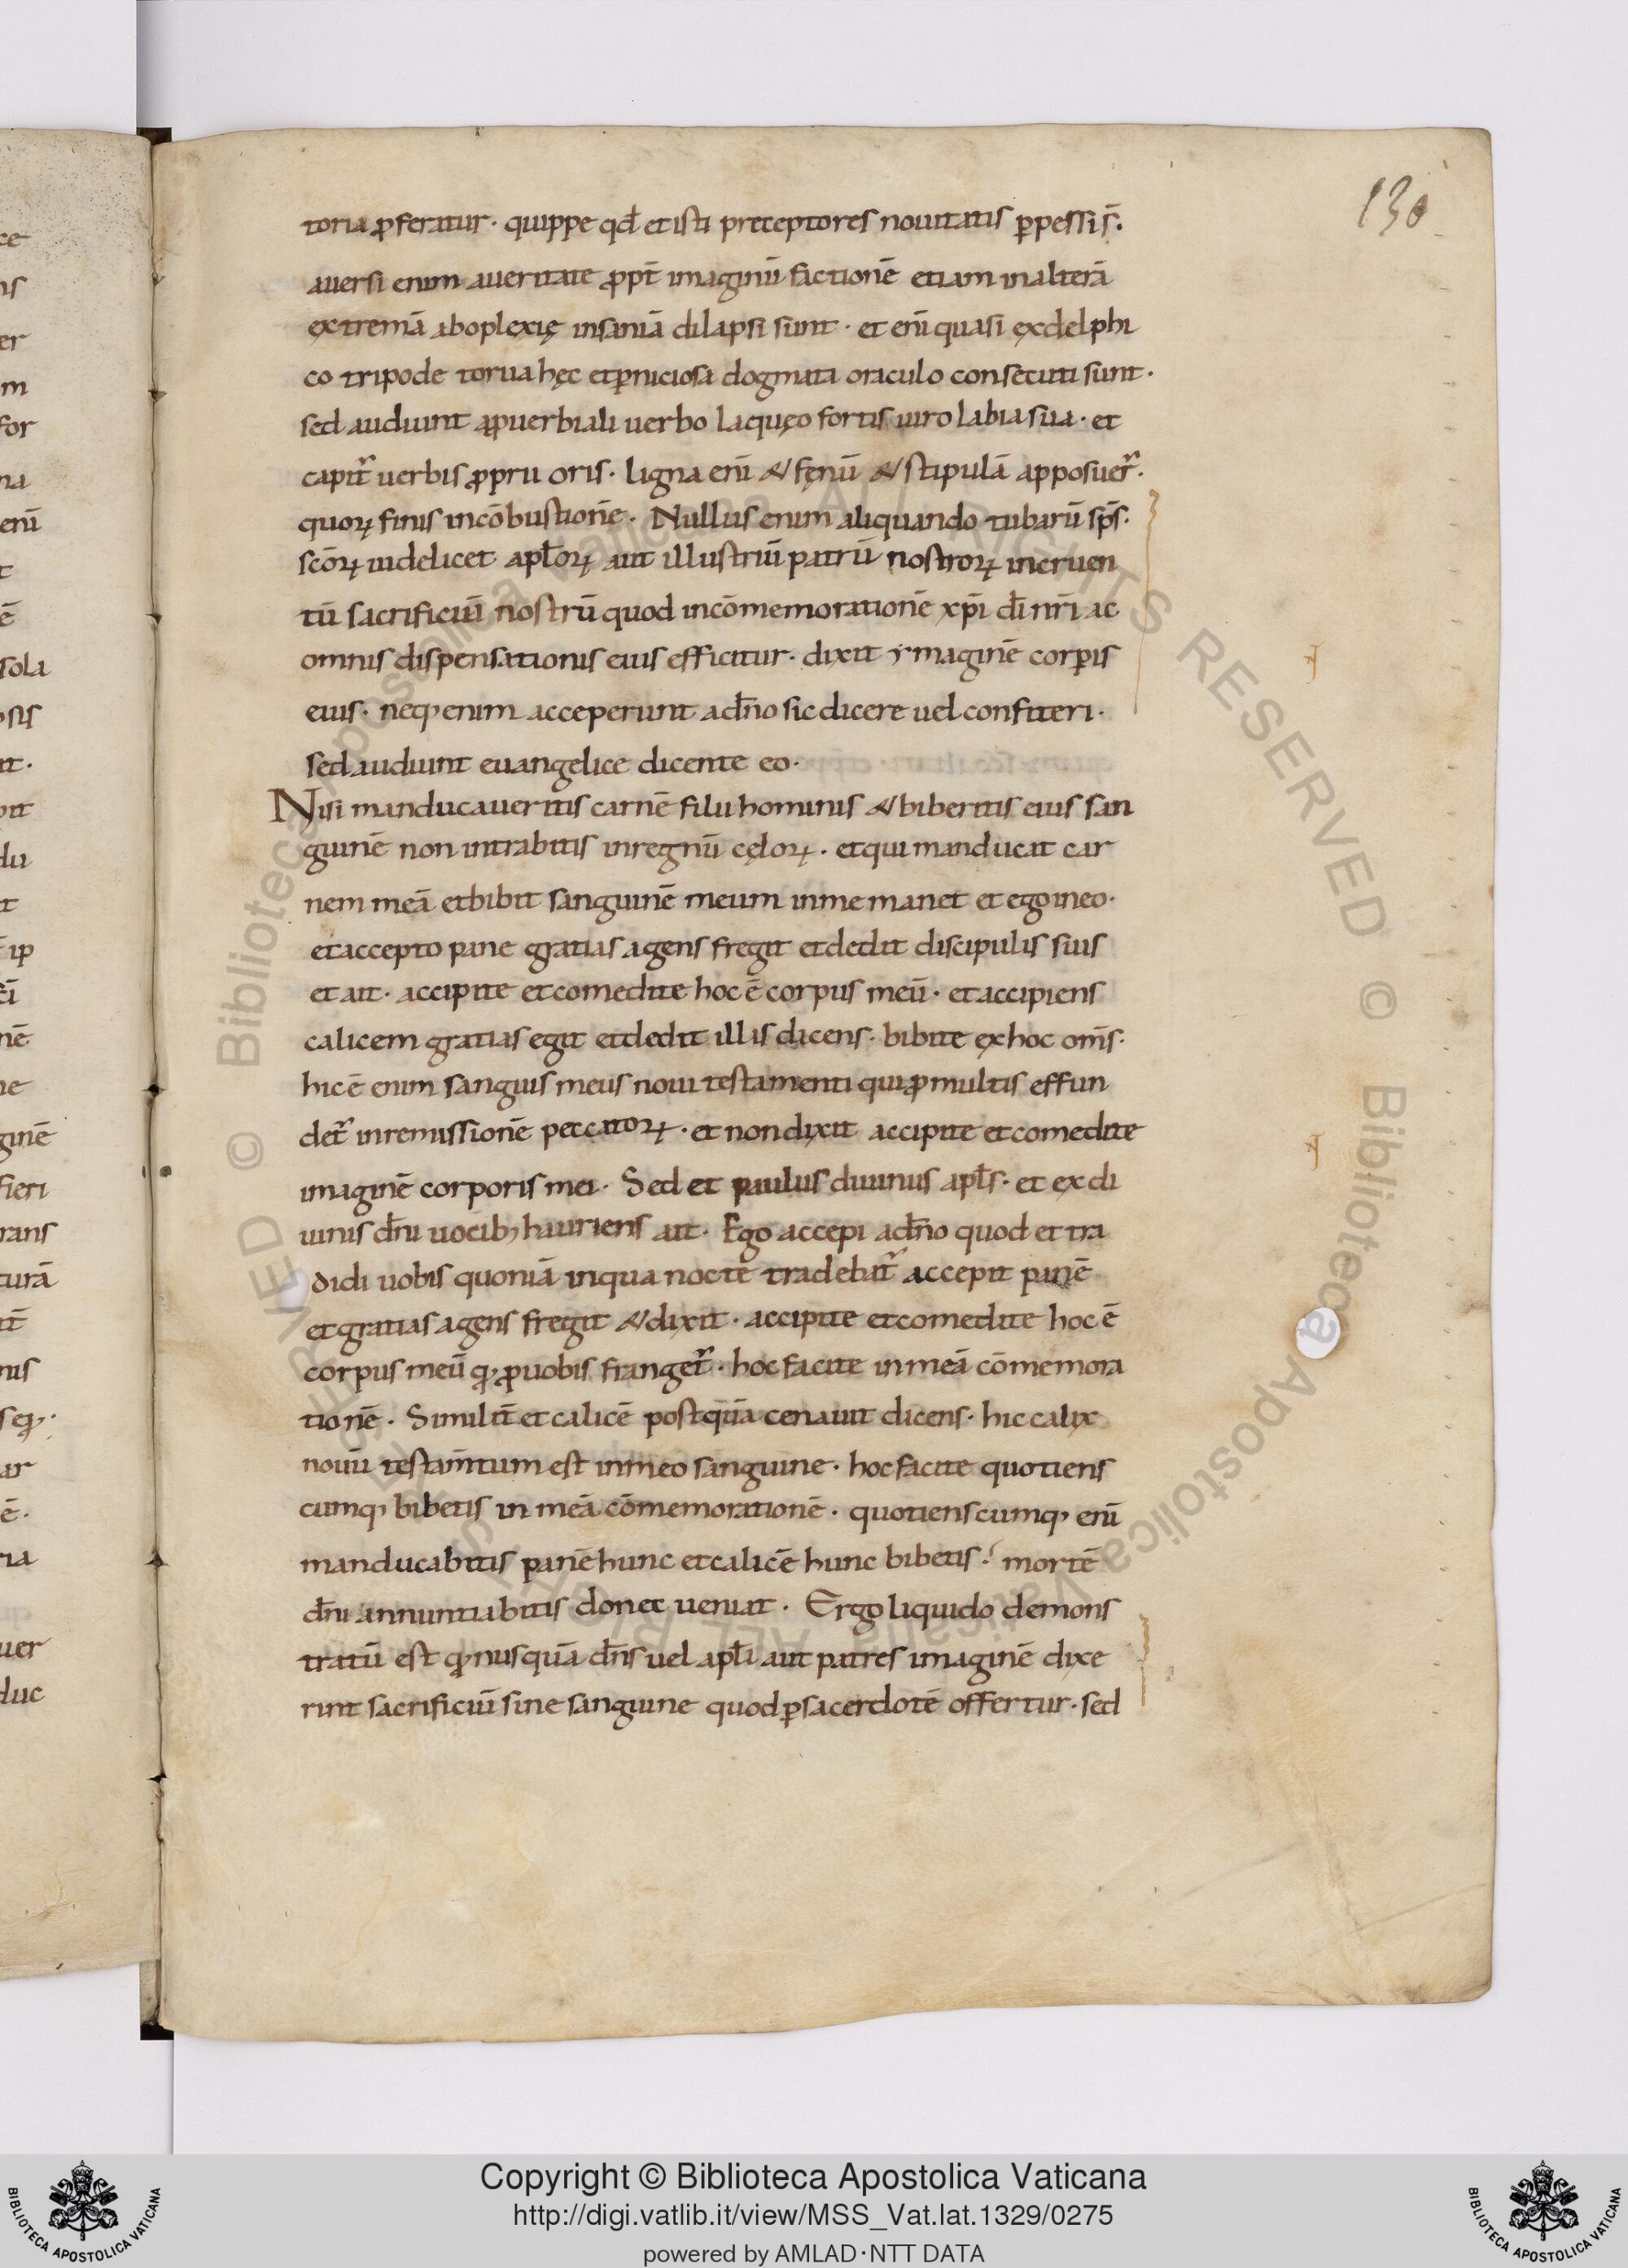 130
toria ꝓferatur· quippe qđ et isti preceptores nouitatis ꝑpessi s̄.
auersi enim aueritate ꝓpt̄ imaginū factionē etiam inalterā
extremā aboplexię insaniā dilapsi sunt· et enī quasi exdelphi
co tripode torua hęc etꝑniciosa dogmata oraculo consecuti sunt·
sed audiunt aꝓuerbiali uerbo laquęo fortis uiro labia sua· et
capit᷑ uerbis ꝓprii oris· ligna enī & fęnū & stipulā apposuer᷑·
quoꝝ finis incōbustionē· Nullus enim aliquando tubarū sp̄s·
scōꝝ uidelicet apłoꝝ aut illustriū patrū nostroꝝ incruen
tū sacrificiū nostrū quod incōmemorationē xp̄i dī nr̄i ac
omnis dispensationis eius efficitur· dixit ymaginē corꝑis
eius· neqꝫ enim acceperunt adn̄o sic dicere uel confiteri·
sed audiunt euangelice dicente eo·
Nisi manducaueritis carnē filii hominis & biberitis eius san
guinē non intrabitis inregnū cęloꝝ· etqui manducat car
nem meā etbibit sanguinē meum inme manet et ego ineo·
et accepto pane gratias agens fregit etdedit discipulis suis
et ait· accipite etcomedite hoc ē corpus meū· et accipiens
calicem gratias egit etdedit illis dicens· bibite exhoc om̄s·
hic ē enim sanguis meus noui testamenti quiꝓmultis effun
det᷑ inremissionē peccatoꝝ· et nondixit accipite etcomedite
imaginē corporis mei· Sed et paulus diuinus apłs· et exdi
uinis dn̄i uocibꝫ hauriens ait· Ego accepi adn̄o quod et tra
didi uobis quoniā inqua nocte tradebat᷑ accepit panē
et gratias agens fregit & dixit· accipite etcomedite hoc ē
corpus meū qꝫ ꝓuobis franget᷑· hoc facite inmeā cōmemora
tionē· Similit̄ et calicē postquā cenauit dicens· hic calix
nouū testam̄tum est inmeo sanguine· hoc facite quotiens
cumqꝫ bibetis in meā cōmemorationē· quotienscumqꝫ enī
manducabitis panē hunc etcalicē hunc bibetis· mortē
dn̄i annuntiabitis donec ueniat· Ergo liquido demons
tratū est qꝫ nusquā dn̄s uel apłi aut patres imaginē dixe
rint sacrificiū sine sanguine quodꝑsacerdotē offertur· sed
Copyright © Biblioteca Apostolica Vaticana
http://digi.vatlib.it/view/MSS_Vat.lat.1329/0275
powered by AMLAD·NTT DATA
BIBLIOTECA APOSTOLICA VATICANA
BIBLIOTECA APOSTOLICA VATICANA
© Biblioteca Apostolica Vaticana ALL RIGHTS RESERVED